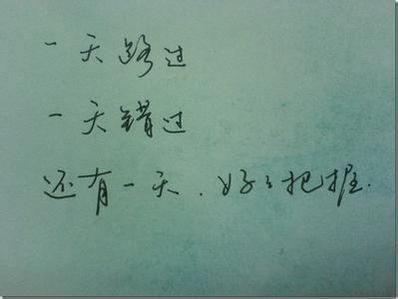 一天路过
一天错过
还有一天.好好把握.